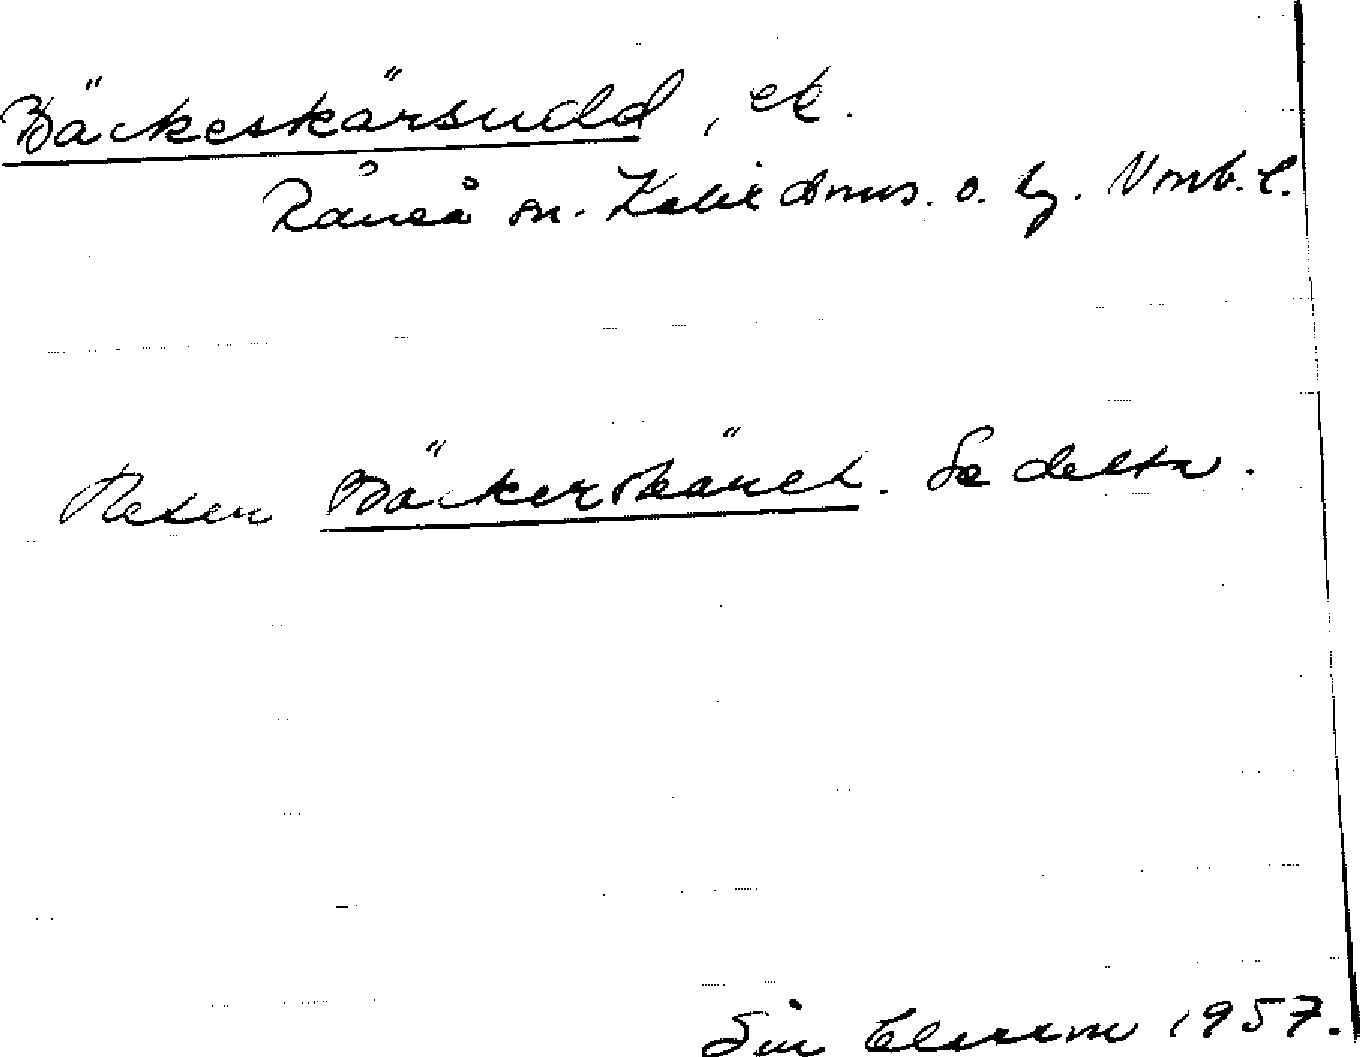 Bäckeskärsudd, ek.
Råneå sn. Kalix doms. o. lg. Nnb. l.
Heter Bäckerskäret. Se detta.
1957.